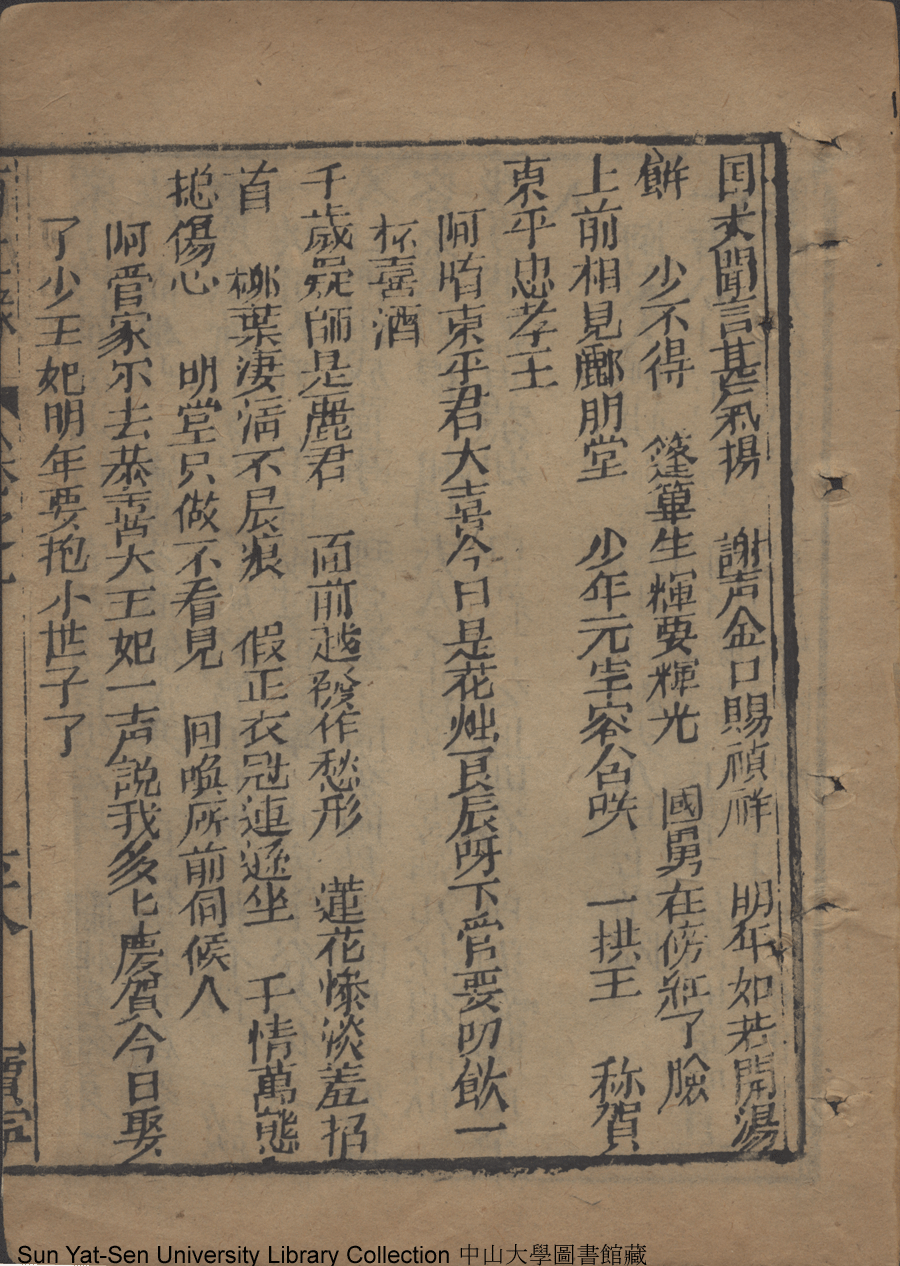 国丈聞言甚氣揚　謝声金口賜禎祥　明年如若開湯
餅　少不得　篷篳生輝要輝光　國舅在傍紅了臉
上前相見酈朋堂　少年元宰容含咲　一拱王　称賀
東平忠孝王
阿唷東平君大喜今日是花灿良辰呀下官要叨飲一
杯喜酒
千歲疑師是麗君　面前越發作愁形　蓮花惨淡羞招
首　柳葉淒清不展痕　假正衣冠連遜坐　千情萬態
抱傷心　明堂只做不看見　回喚㕔前伺候人
阿管家尔去恭喜大王妃一声說我多匕慶賀今日娶
了少王妃明年要抱小世子了
Sun Yat-Sen University Library Collection 中山大學圖書館藏